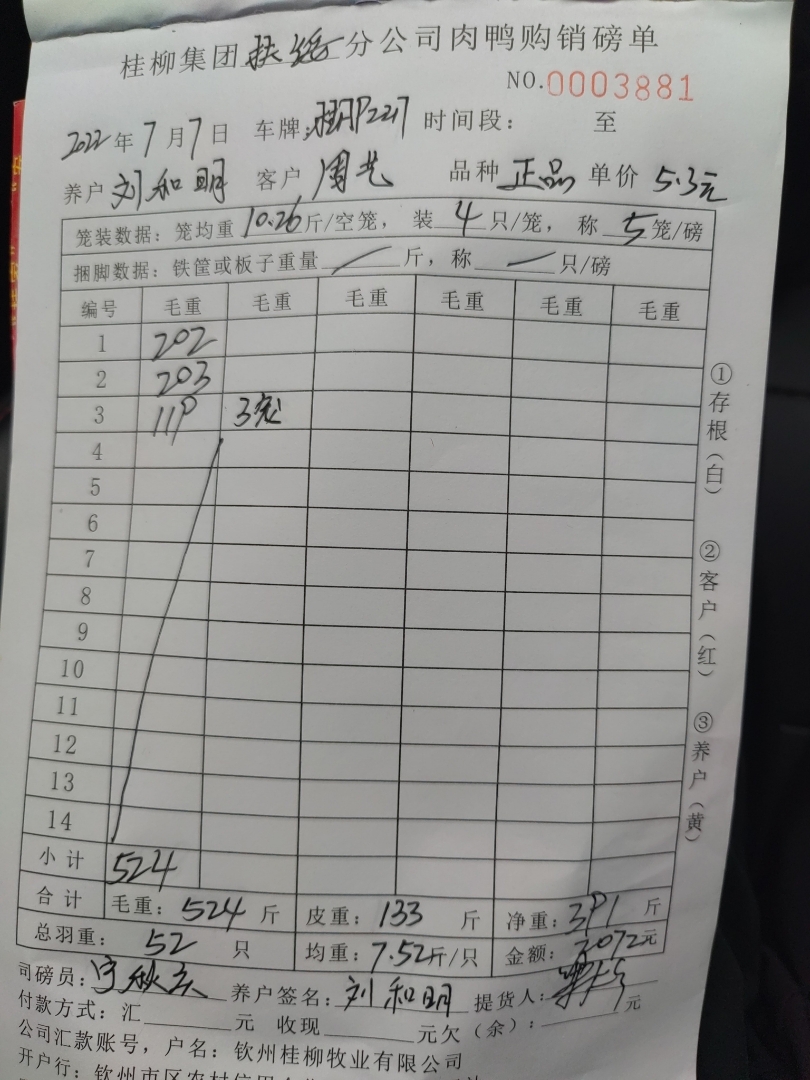 桂柳集团扶绥分公司肉鸭购销磅单
NO.0003881
2022年7月7日 车牌: 时间段: 至
养户 刘和明 客户 周艺 品种 正品 单价 5.3元
笼装数据: 笼均重10.26斤/空笼, 装4只/笼, 称5笼/磅
捆脚数据: 铁筐或板子重量 斤, 称 只/磅
编号 毛重 毛重 毛重 毛重 毛重 毛重
1 202
2 203
3 119 3笼
4
5
6
7
8
9
10
11
12
13
14
小计 524
合计 毛重: 524 斤 皮重: 133 斤 净重: 391 斤
总羽重: 52 只 均重: 7.52斤/只 金额: 2072元
司磅员: 养户签名: 刘和明 提货人:
付款方式: 汇 元 收现 元欠(余): 元
公司汇款账号, 户名: 钦州桂柳牧业有限公司
开户行: 钦州市区农村信用合
①存根(白) ②客户(红) ③养户(黄)